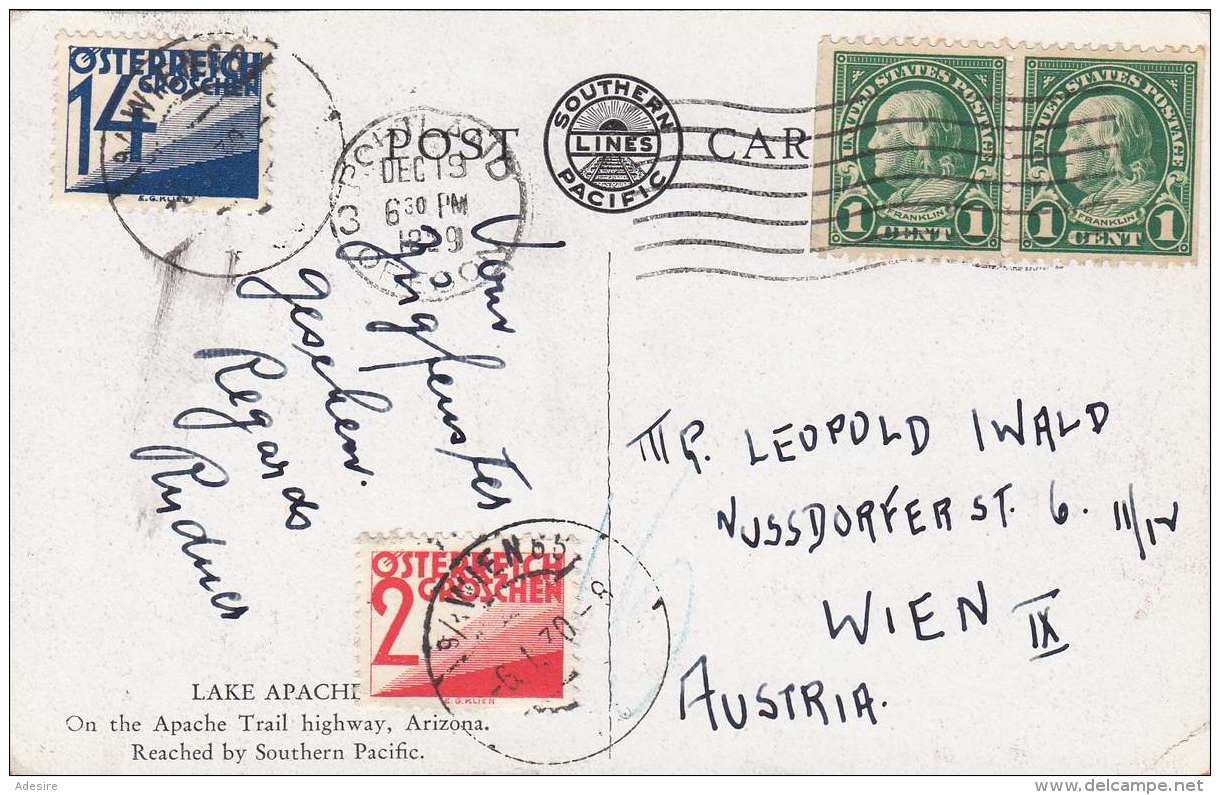 ÖSTERREICH
GROSCHEN
14
E.G.KLIEN
POST CAR
SOUTHERN
LINES
PACIFIC
PORTLAND
DEC 19
6 30 PM
1929
3
UNITED STATES POSTAGE
FRANKLIN
1 CENT 1
UNITED STATES POSTAGE
FRANKLIN
1 CENT 1
Vom
Zugfenster
gesehen.
Regards
MR. LEOPOLD IWALD
NUSSDORFERST. 6. III/IV
WIEN IX
AUSTRIA.
ÖSTERREICH
GROSCHEN
2
E.G.KLIEN
WIEN
LAKE APACHE
On the Apache Trail highway, Arizona.
Reached by Southern Pacific.
Adesire
delcampe.net